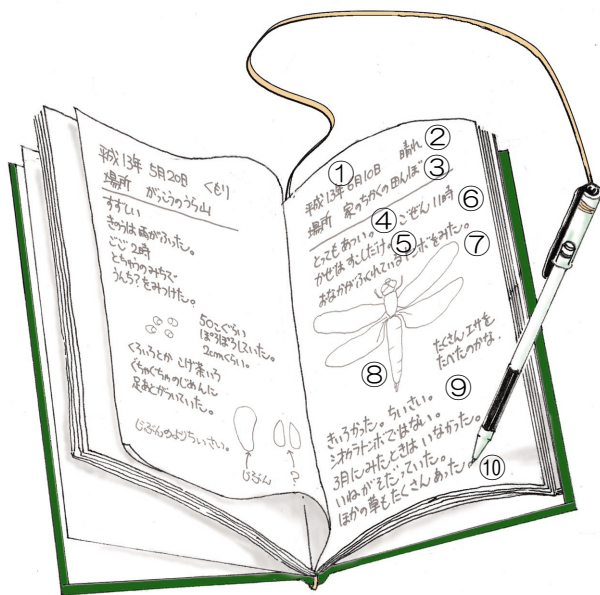 平成13年 5月20日 くもり
場所 がっこうのうら山
すずしい
きのうは雨がふった。
ごご2時
とちゅうのみちで
うんち?をみつけた。
50こぐらい
ぽろぽろしていた。
2cmくらい。
くろいろとか こげ茶いろ
ぐちゃぐちゃのじめんに
足あとがついていた。
じぶんのよりちいさい。
じぶん
?
① 平成13年 6月10日 晴れ ②
場所 家のちかくの田んぼ ③
④ ごぜん 11時 ⑥
とってもあつい。
かぜはすこしだけ。 ⑤
おなかがふくれているトンボをみた。 ⑦
たくさんエサを
たべたのかな.
⑧
⑨
きいろかった。ちいさい。
シオカラトンボではない。
3月にみたときは いなかった。
いねがそだっていた。
ほかの草もたくさん あった ⑩